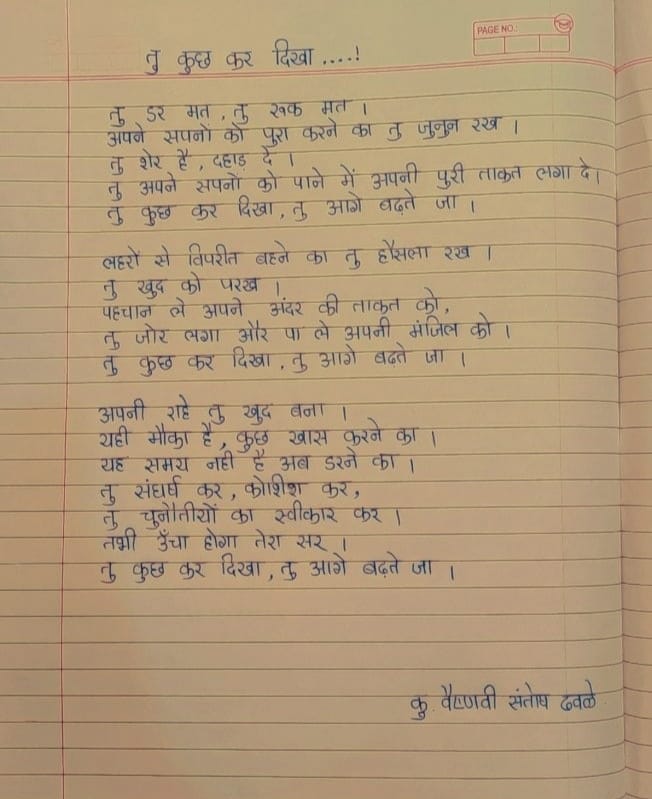 PAGE NO.:
तु कुछ कर दिखा ....!
तु डर मत, तु रूक मत ।
अपने सपनों को पुरा करने का तु जुनुन रख ।
तु शेर है, दहाड़ दे ।
तु अपने सपनों को पाने में अपनी पुरी ताकत लगा दे।
तु कुछ कर दिखा, तु आगे बढ़ते जा ।
लहरों से विपरीत बहने का तु हौसला रख ।
तु खुद को परख ।
पहचान ले अपने अंदर की ताकत को,
तु जोर लगा और पा ले अपनी मंजिल को ।
तु कुछ कर दिखा, तु आगे बढते जा ।
अपनी राहे तु खुद बना ।
यही मौका है, कुछ खास करने का ।
यह समय नही है अब डरने का ।
तु संघर्ष कर, कोशिश कर,
तु चुनौतीयों का स्वीकार कर ।
तभी उँचा होगा तेरा सर ।
तु कुछ कर दिखा, तु आगे बढ़ते जा ।
कु. वैष्णवी संतोष ढवळे